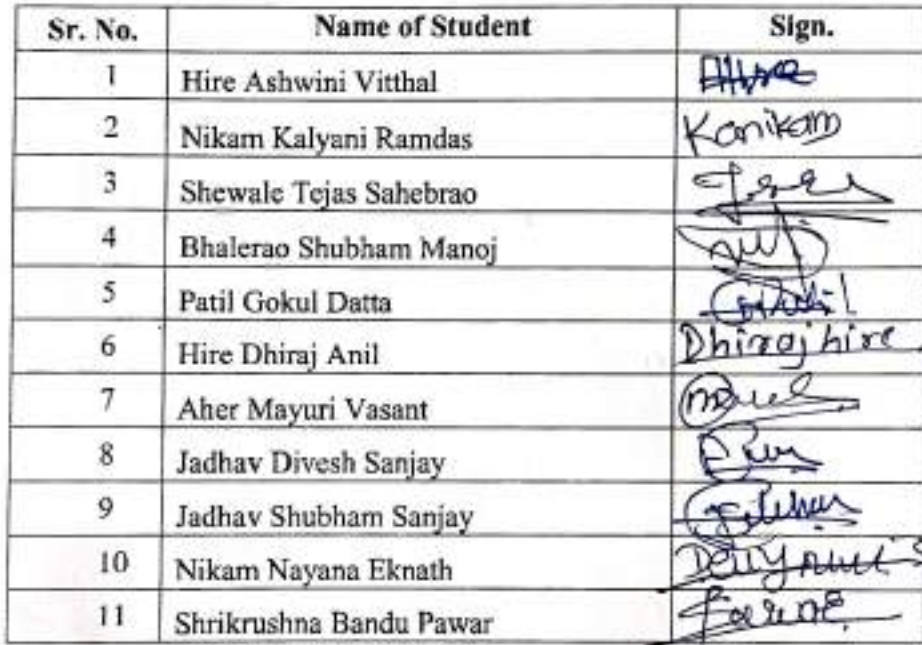 Sr. No. Name of Student Sign.
1 Hire Ashwini Vitthal
2 Nikam Kalyani Ramdas Kanikam
3 Shewale Tejas Sahebrao
4 Bhalerao Shubham Manoj
5 Patil Gokul Datta
6 Hire Dhiraj Anil Dhiraj hire
7 Aher Mayuri Vasant
8 Jadhav Divesh Sanjay
9 Jadhav Shubham Sanjay
10 Nikam Nayana Eknath
11 Shrikrushna Bandu Pawar